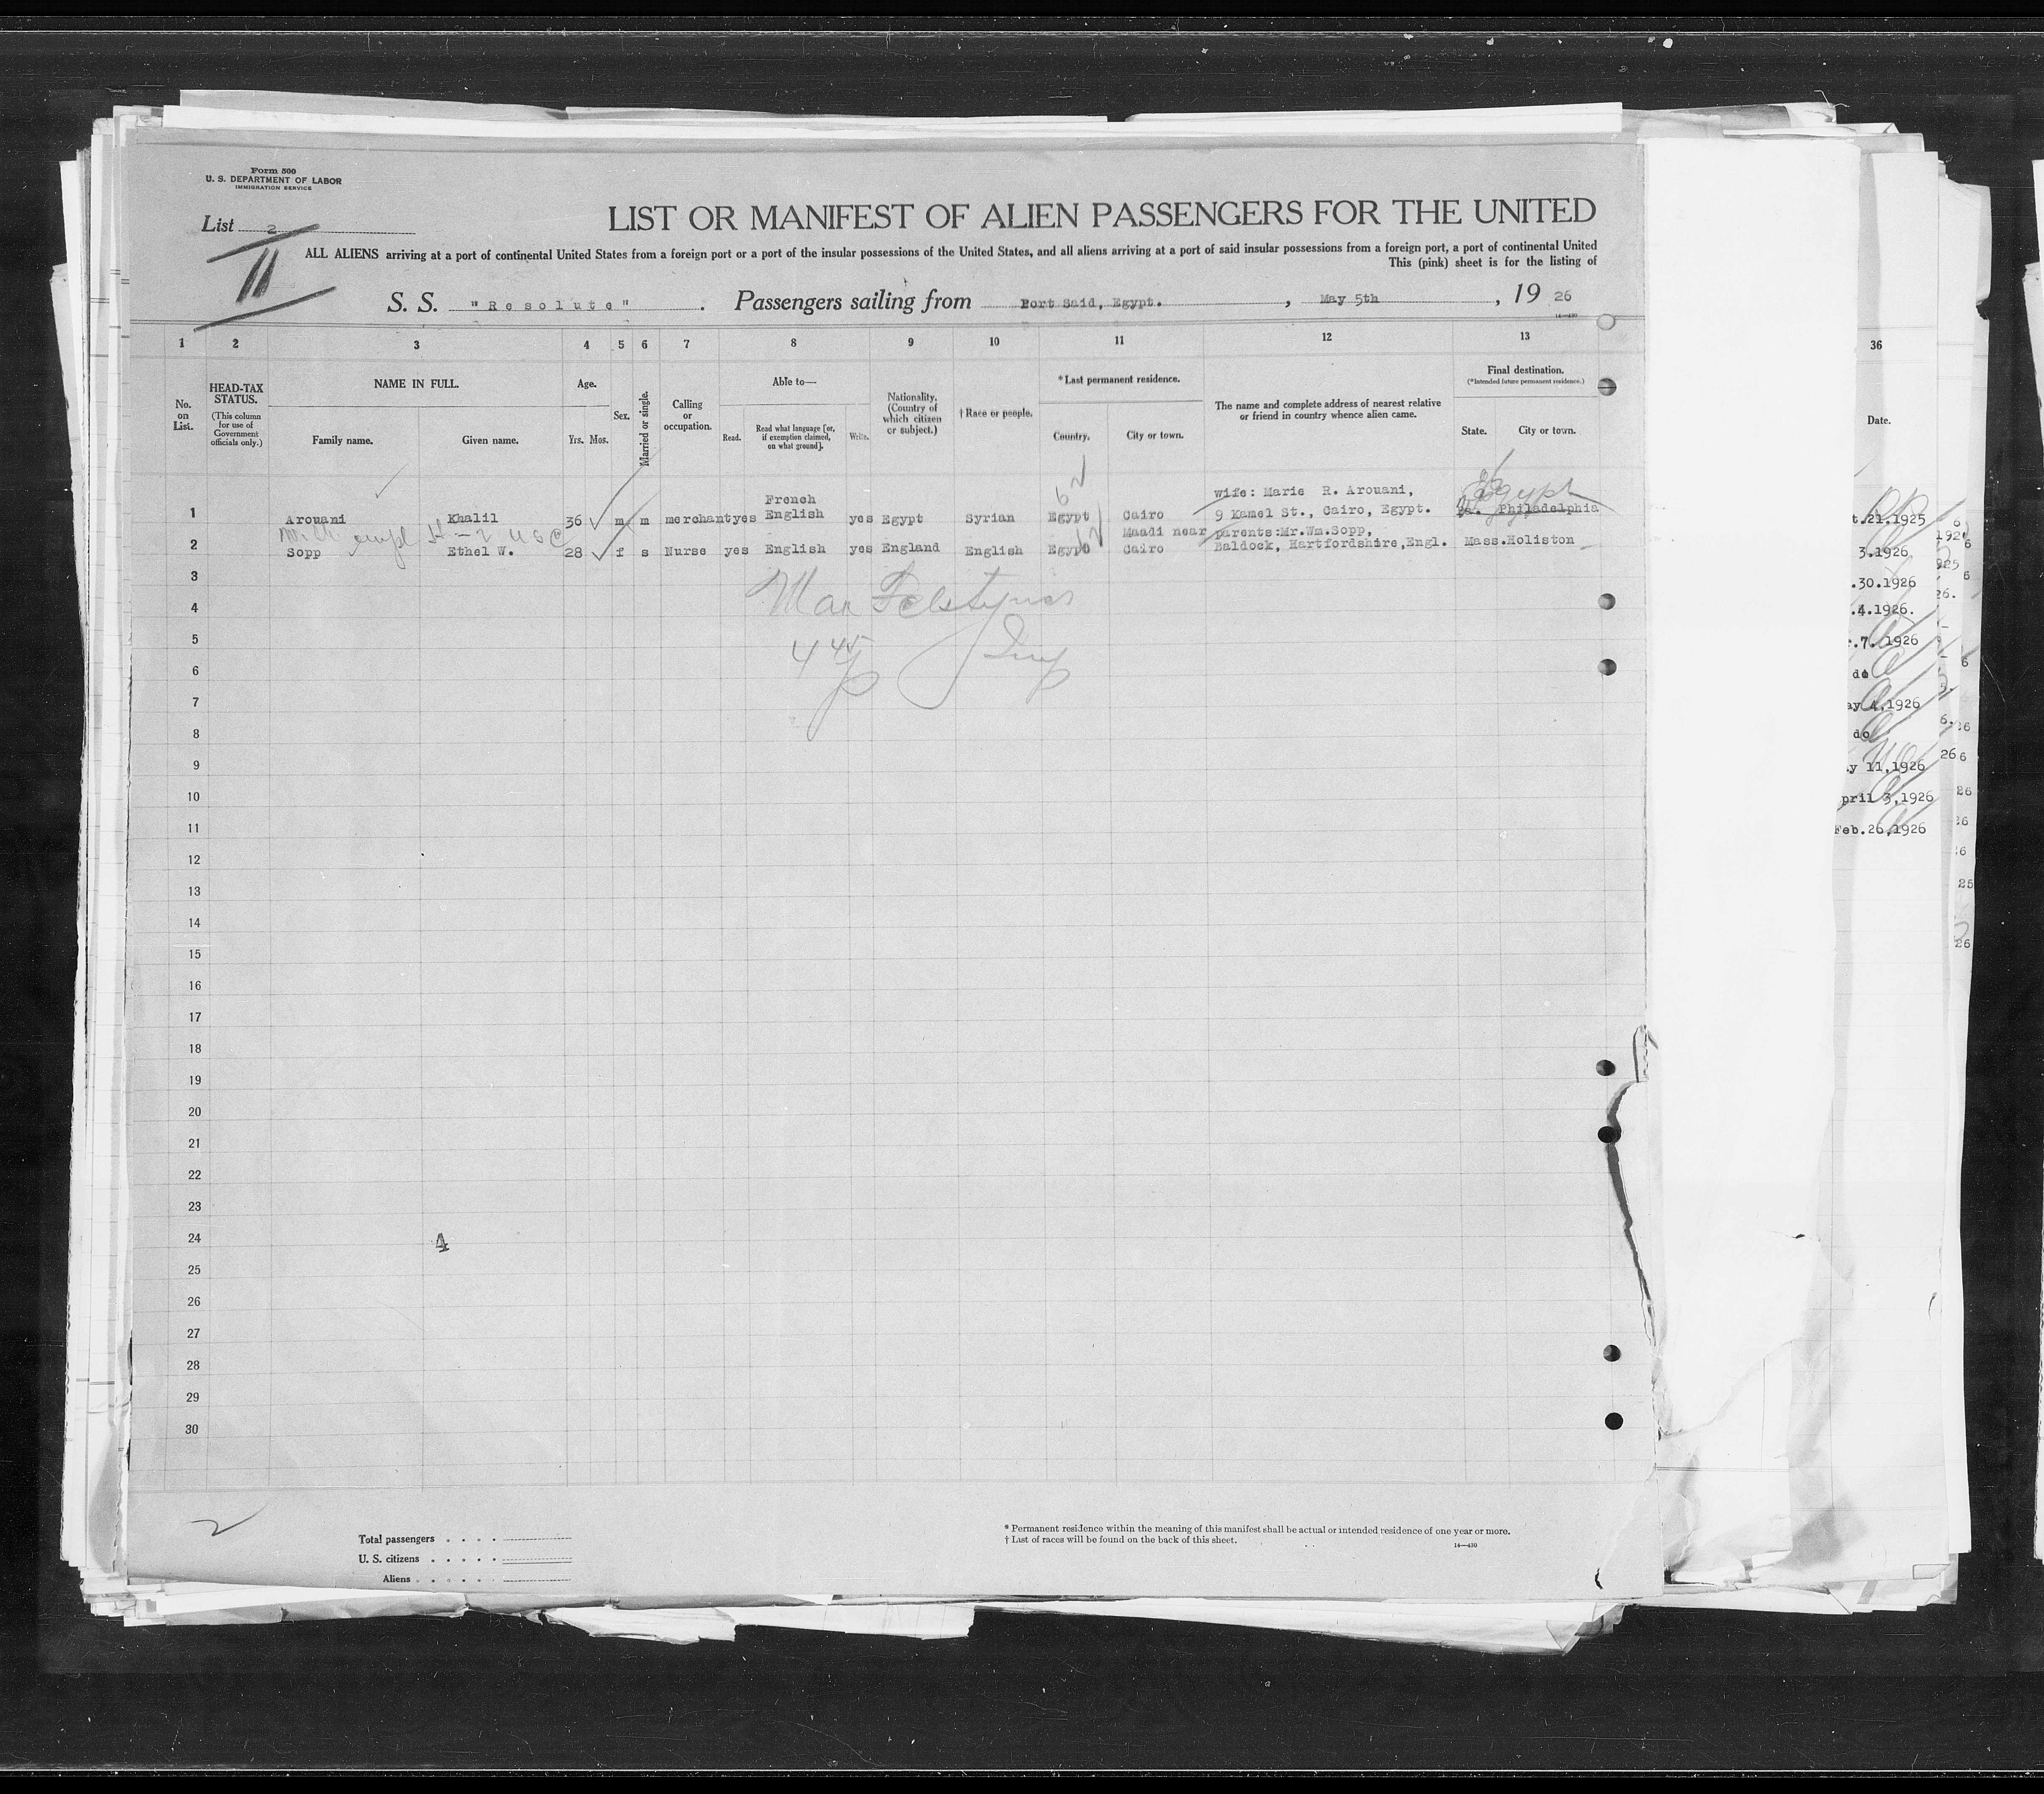 Form 500
U. S. DEPARTMENT OF LABOR
IMMIGRATION SERVICE
List 2
II
LIST OR MANIFEST OF ALIEN PASSENGERS FOR THE UNITED
ALL ALIENS arriving at a port of continental United States from a foreign port or a port of the insular possessions of the United States, and all aliens arriving at a port of said insular possessions from a foreign port, a port of continental United
This (pink) sheet is for the listing of
S. S. "Resolute". Passengers sailing from Port Said, Egypt., May 5th, 19 26
14—430
1 2 3 4 5 6 7 8 9 10 11 12 13
No. on List.
HEAD-TAX STATUS.
(This column for use of Government officials only.)
NAME IN FULL.
Family name. Given name.
Age.
Yrs. Mos.
Sex.
Married or single.
Calling or occupation.
Able to—
Read. Read what language [or, if exemption claimed, on what ground]. Write.
Nationality. (Country of which citizen or subject.)
† Race or people.
*Last permanent residence.
Country. City or town.
The name and complete address of nearest relative or friend in country whence alien came.
Final destination.
(*Intended future permanent residence.)
State. City or town.
French wife: Marie R. Arouani, Egypt
1 Arouani Khalil 36 m m merchant yes English yes Egypt Syrian Egypt Cairo 9 Kamel St., Cairo, Egypt. Pa. Philadelphia
Maadi near parents:Mr.Wm.Sopp,
2 Sopp Ethel W. 28 f s Nurse yes English yes England English Egypt Cairo Baldock, Hartfordshire,Engl. Mass.Holiston
3
4
5
6
7
8
9
10
11
12
13
14
15
16
17
18
19
20
21
22
23
24
4
25
26
27
28
29
30
2
Total passengers
U. S. citizens
Aliens
* Permanent residence within the meaning of this manifest shall be actual or intended residence of one year or more.
† List of races will be found on the back of this sheet.
14—430
36
Date.
t.21.1925
3.1926
.30.1926
.4.1926.
.7. 1926
do
ay 4,1926
do
y 11,1926
pril 3,1926
Feb.26,1926